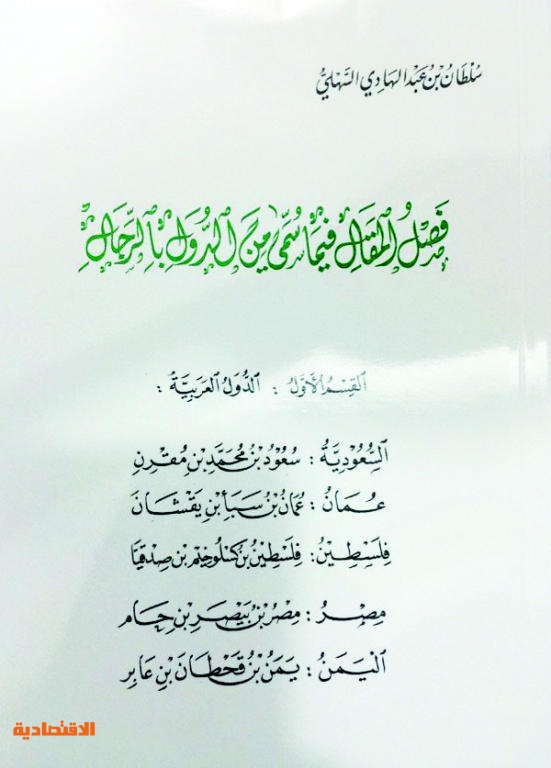 سُلْطَانُ بْنُ عَبْدِ الهَادِي السَّهْلِيُّ
فَصْلُ المَقَالِ فِيمَا سُمِّيَ مِنَ الدُّوَلِ بِالرِّجَالِ
القِسْمُ الأَوَّلُ : الدُّوَلُ العَرَبِيَّةُ :
السُّعُودِيَّةُ : سُعُودُ بْنُ مُحَمَّدِ بْنِ مُقْرِنِ
عُمَانُ : عُمَانُ بْنُ سَبَأِ بْنِ يَقْشَانَ
فِلَسْطِينُ : فِلَسْطِينُ بْنُ كَسْلُوخِيْمَ بْنِ صِدْقِيَّا
مِصْرُ : مِصْرُ بْنُ بَيْصَرِ بْنِ حَامِ
الْيَمَنُ : يَمَنُ بْنُ قَحْطَانَ بْنِ عَابِرِ
الاقتصادية